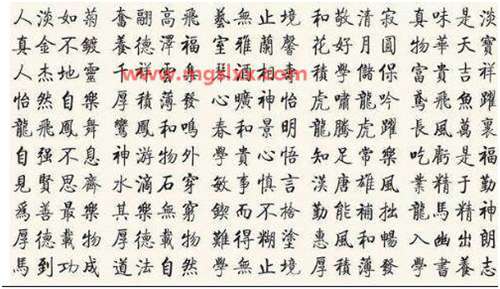 人淡如菊 奮翮高飛 藝無止境 和敬清寂 真味是淡
真金不鍍 養德澤福 室雅蘭馨 花好月圓 物華天寶
人杰地靈 千祥 酒 學儲 富貴吉祥
www.mgslxx.com
怡然自樂 厚積薄發 心曠神怡 虎嘯龍吟 鳶飛魚躍
龍飛鳳舞 鸞鳳和鳴 春和景明 龍騰虎躍 長風萬裏
自强不息 神游物外 學貴心悟 知足常樂 吃虧是福
見賢思齊 水滴石穿 敏事慎言 漢唐雄風 業精于勤
爲善最樂 其樂無窮 鍥而不捨 勤能補拙 龍馬精神
厚德載物 厚德載物 難得糊塗 惠風和暢 入幽出朗
馬到功成 道法自然 學無止境 厚積薄發 學書養志